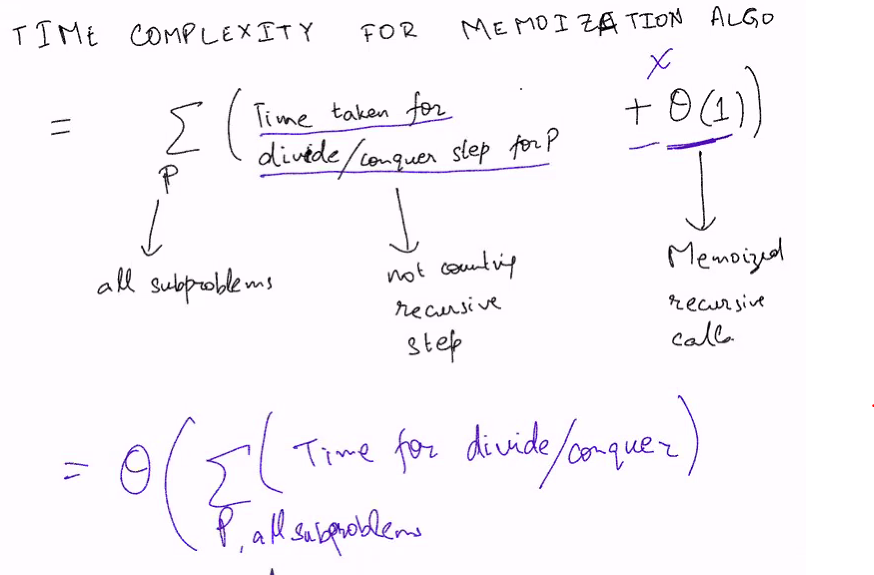 TIME COMPLEXITY FOR MEMOIZATION ALGO
= Σ ( Time taken for divide/conquer step for P + Θ(1) )
x
P
all subproblems
not counting recursive step
Memoized recursive calls
= Θ( Σ ( Time for divide/conquer )
P, all subproblems